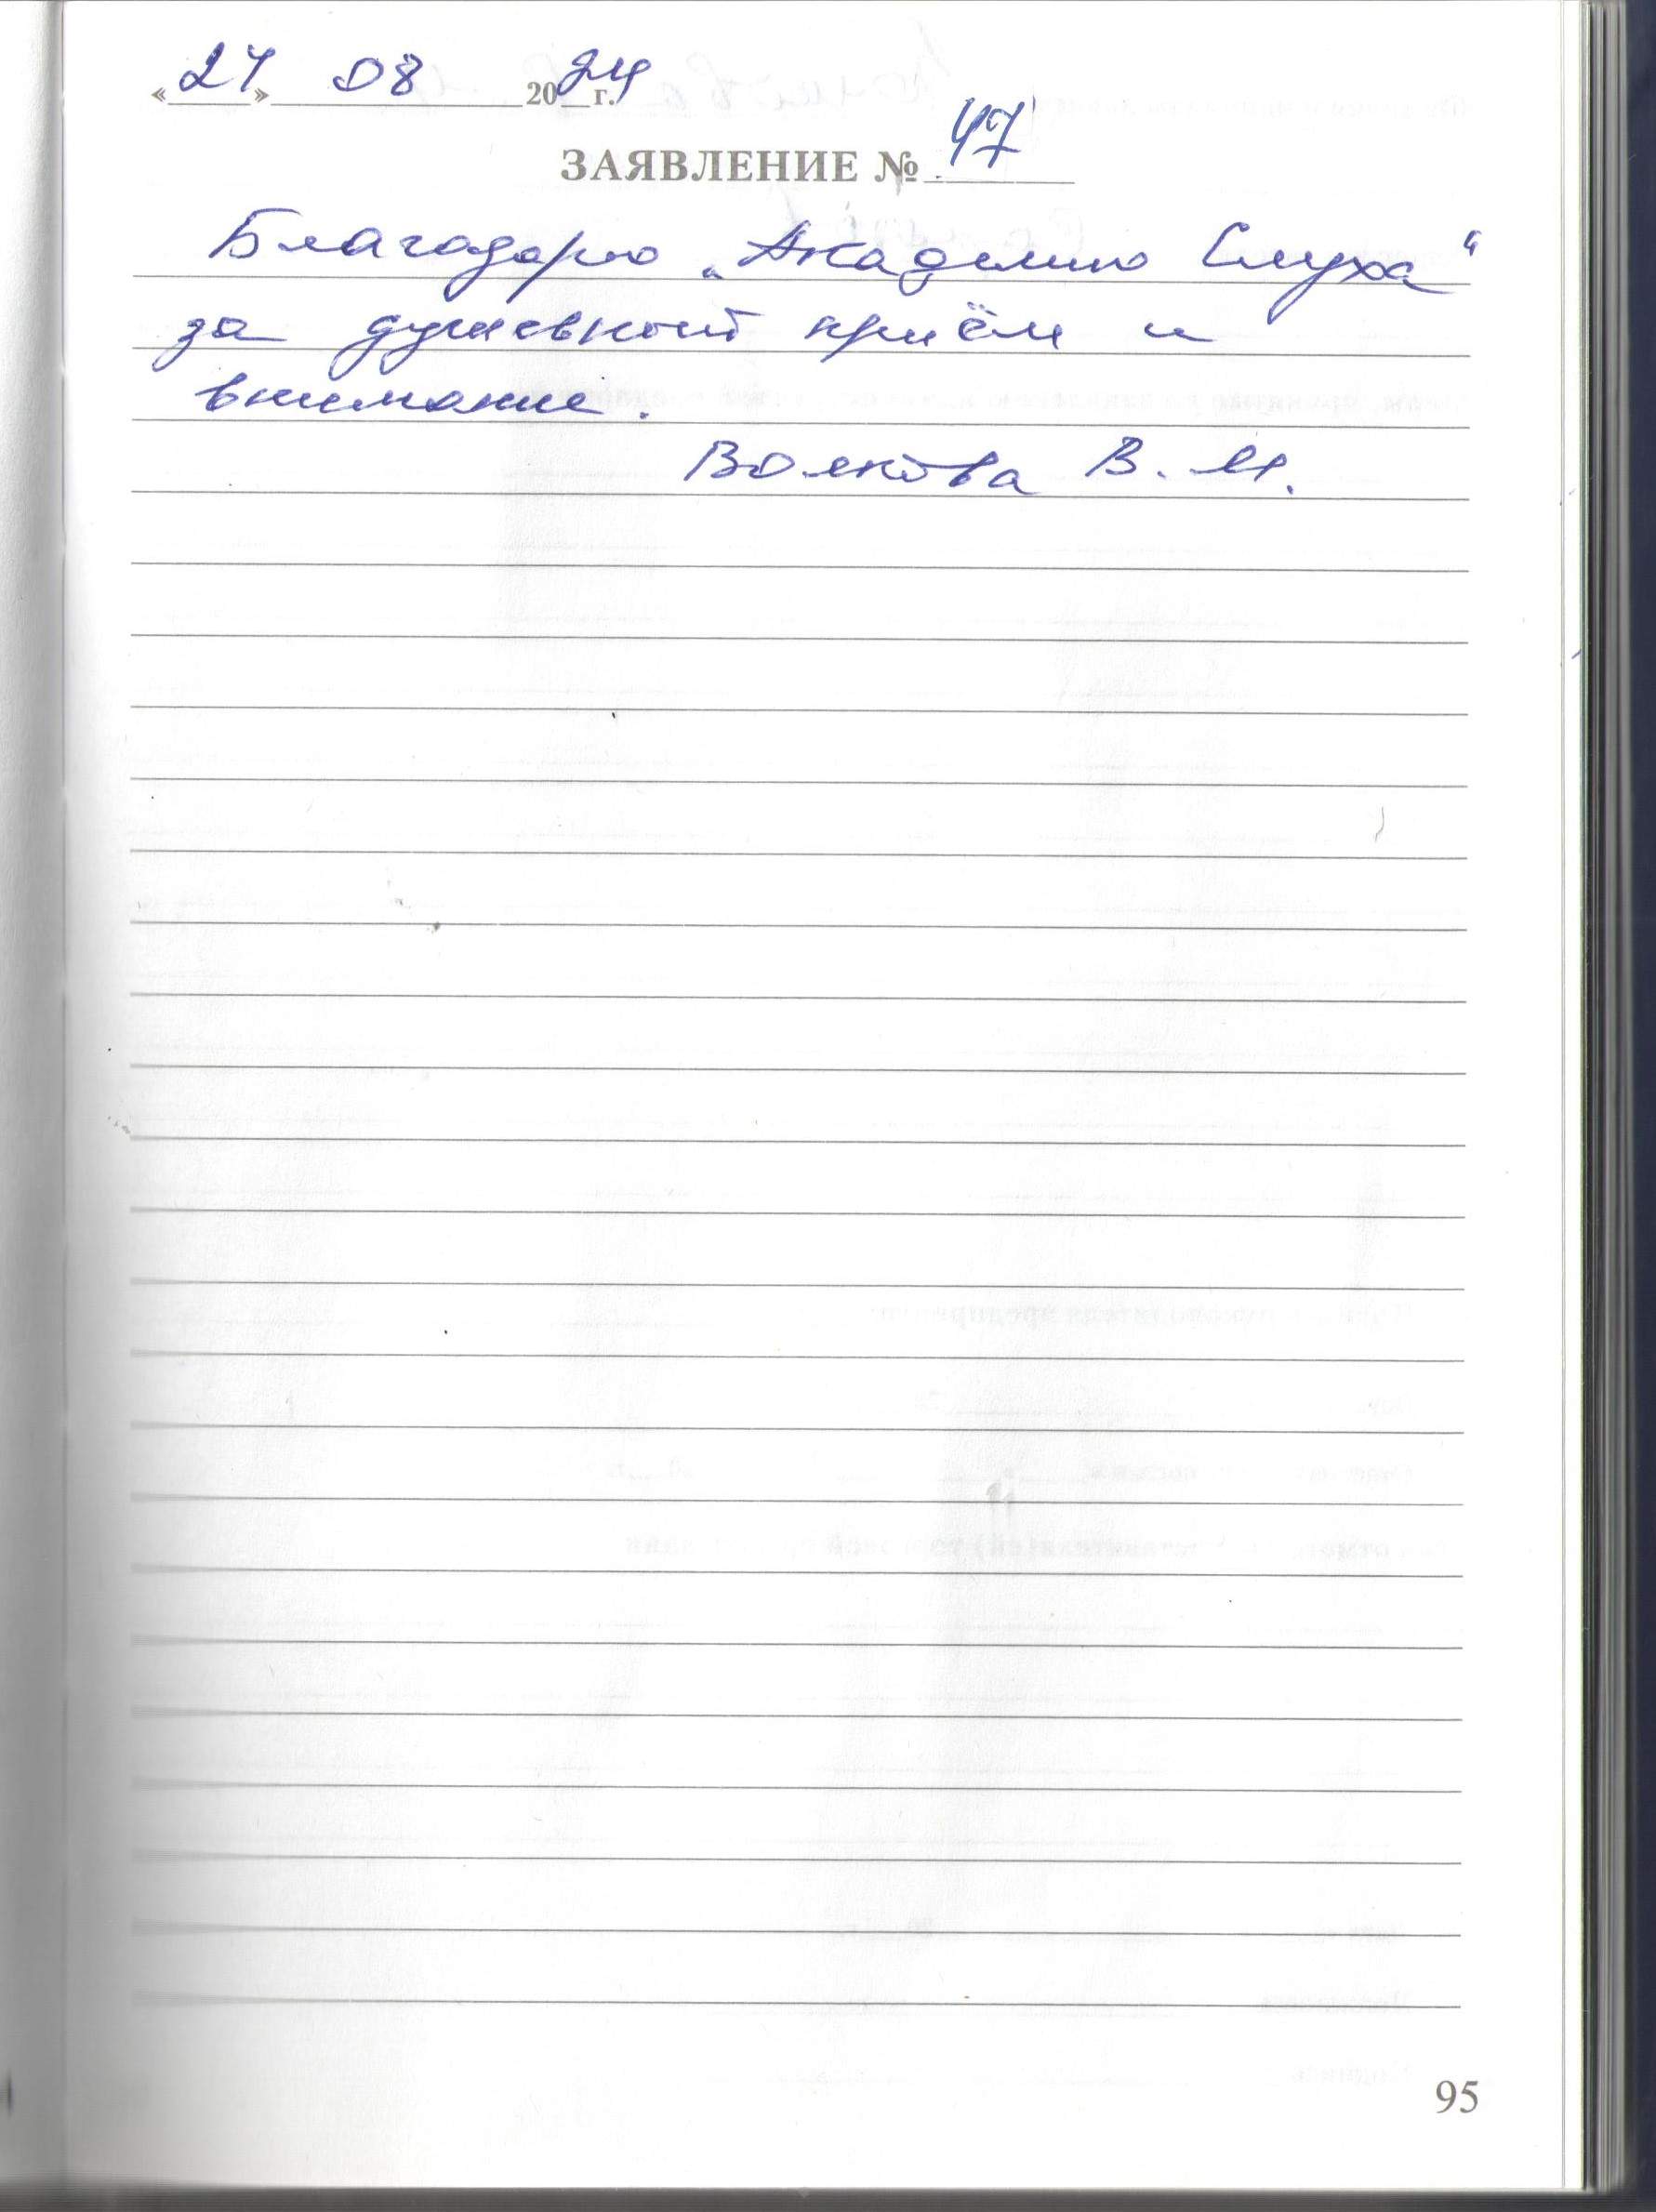 «27» 08 2024 г.
ЗАЯВЛЕНИЕ № 47
Благодарю „Академию Слуха“
за душевный приём и
внимание.
Волкова В. И.
95